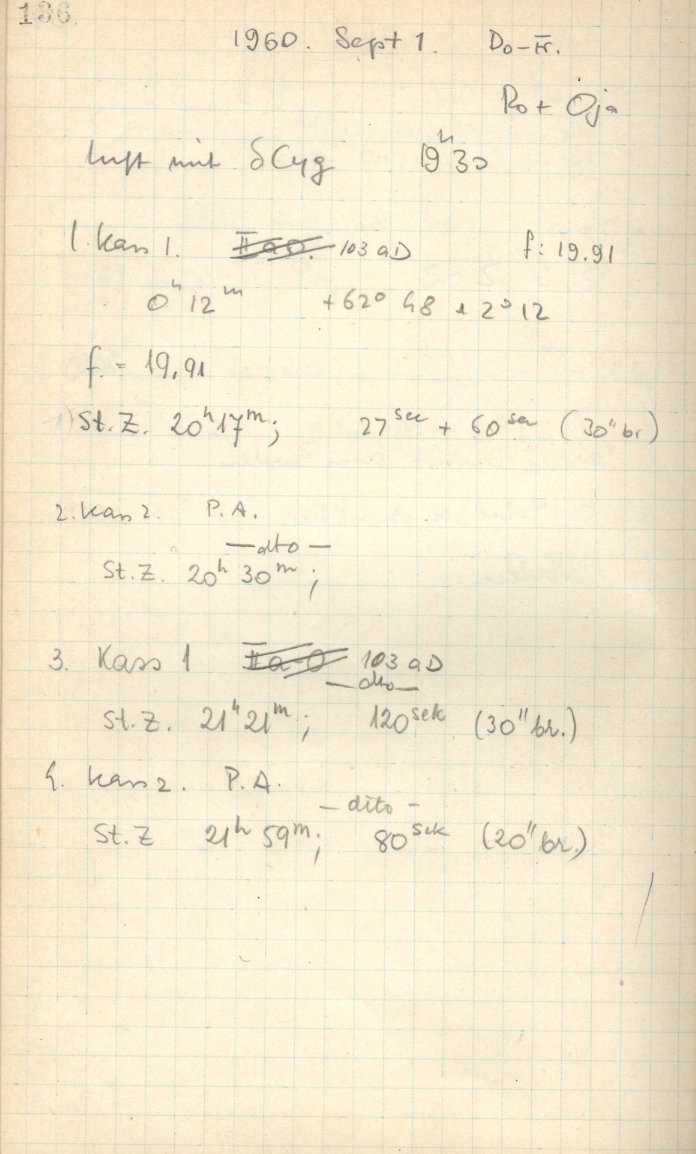 136
1960. Sept 1. Do-Fr.
Ro + Öja
Luft mit δCyg 19h30
1. Kass 1. IIaO. 103aD f: 19.91
0h 12m +62° 48 2° 12
f. = 19,91
1) St.Z. 20h17m; 27sec + 60sec (30" br)
2. Kass 2. P.A.
— dto —
St.Z. 20h 30m;
3. Kass 1 IIa-O 103aD
— dto —
St.Z. 21h 21m; 120sek (30" br.)
4. Kass 2. P.A.
— dito –
St.Z 21h 59m; 80sek (20" br.)